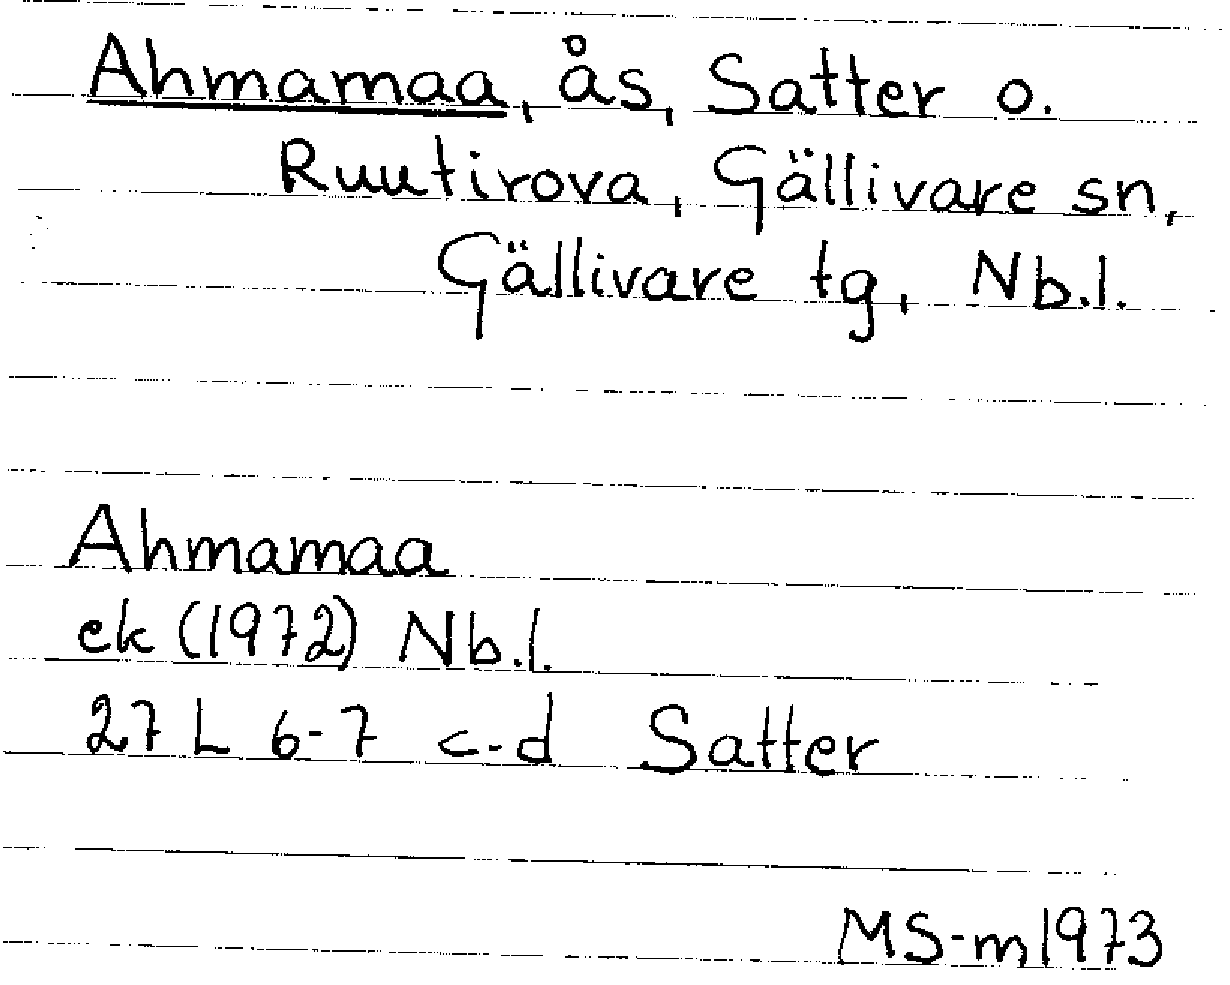 Ahmamaa, ås, Satter o.
Ruutirova, Gällivare sn,
Gällivare tg, Nb.l.
Ahmamaa
ek (1972) Nb.l.
27 L 6-7 c-d Satter
MS-m1973